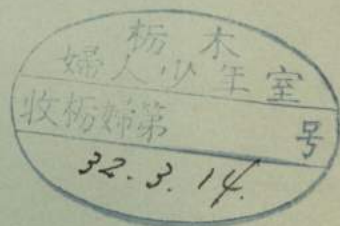 栃木
婦人少年室
收栃婦第 号
32.3.14.